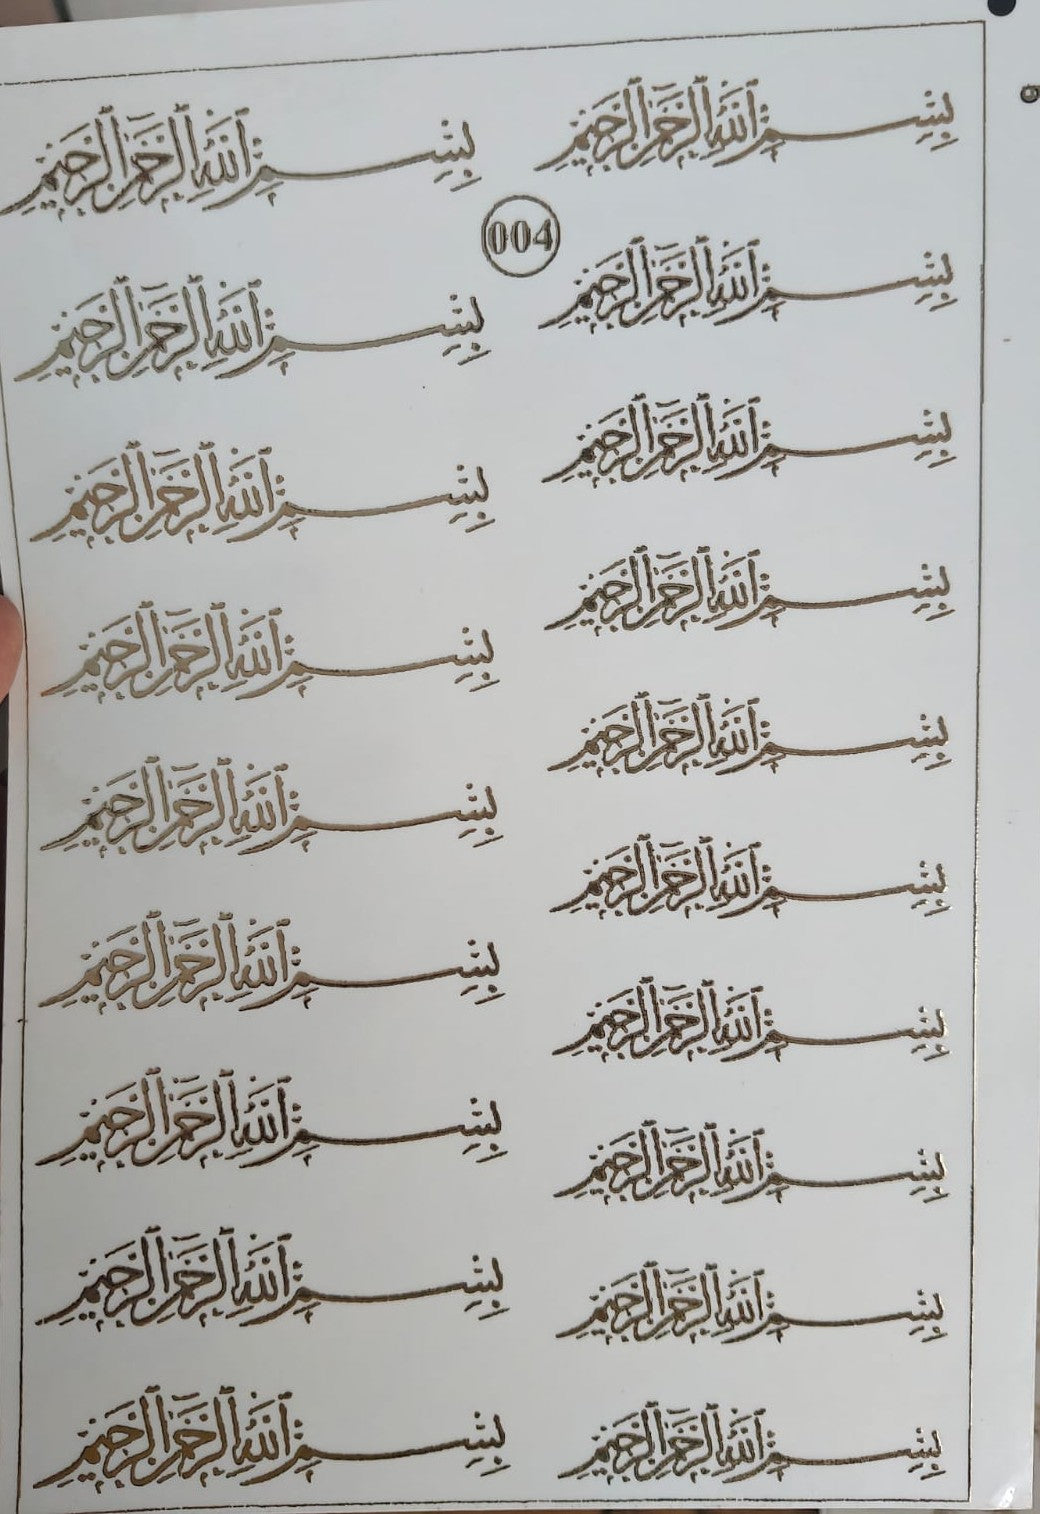 بِسْمِ اللَّهِ الرَّحْمَنِ الرَّحِيمِ
بِسْمِ اللَّهِ الرَّحْمَنِ الرَّحِيمِ
بِسْمِ اللَّهِ الرَّحْمَنِ الرَّحِيمِ
بِسْمِ اللَّهِ الرَّحْمَنِ الرَّحِيمِ
بِسْمِ اللَّهِ الرَّحْمَنِ الرَّحِيمِ
بِسْمِ اللَّهِ الرَّحْمَنِ الرَّحِيمِ
بِسْمِ اللَّهِ الرَّحْمَنِ الرَّحِيمِ
بِسْمِ اللَّهِ الرَّحْمَنِ الرَّحِيمِ
بِسْمِ اللَّهِ الرَّحْمَنِ الرَّحِيمِ
بِسْمِ اللَّهِ الرَّحْمَنِ الرَّحِيمِ
004
بِسْمِ اللَّهِ الرَّحْمَنِ الرَّحِيمِ
بِسْمِ اللَّهِ الرَّحْمَنِ الرَّحِيمِ
بِسْمِ اللَّهِ الرَّحْمَنِ الرَّحِيمِ
بِسْمِ اللَّهِ الرَّحْمَنِ الرَّحِيمِ
بِسْمِ اللَّهِ الرَّحْمَنِ الرَّحِيمِ
بِسْمِ اللَّهِ الرَّحْمَنِ الرَّحِيمِ
بِسْمِ اللَّهِ الرَّحْمَنِ الرَّحِيمِ
بِسْمِ اللَّهِ الرَّحْمَنِ الرَّحِيمِ
بِسْمِ اللَّهِ الرَّحْمَنِ الرَّحِيمِ